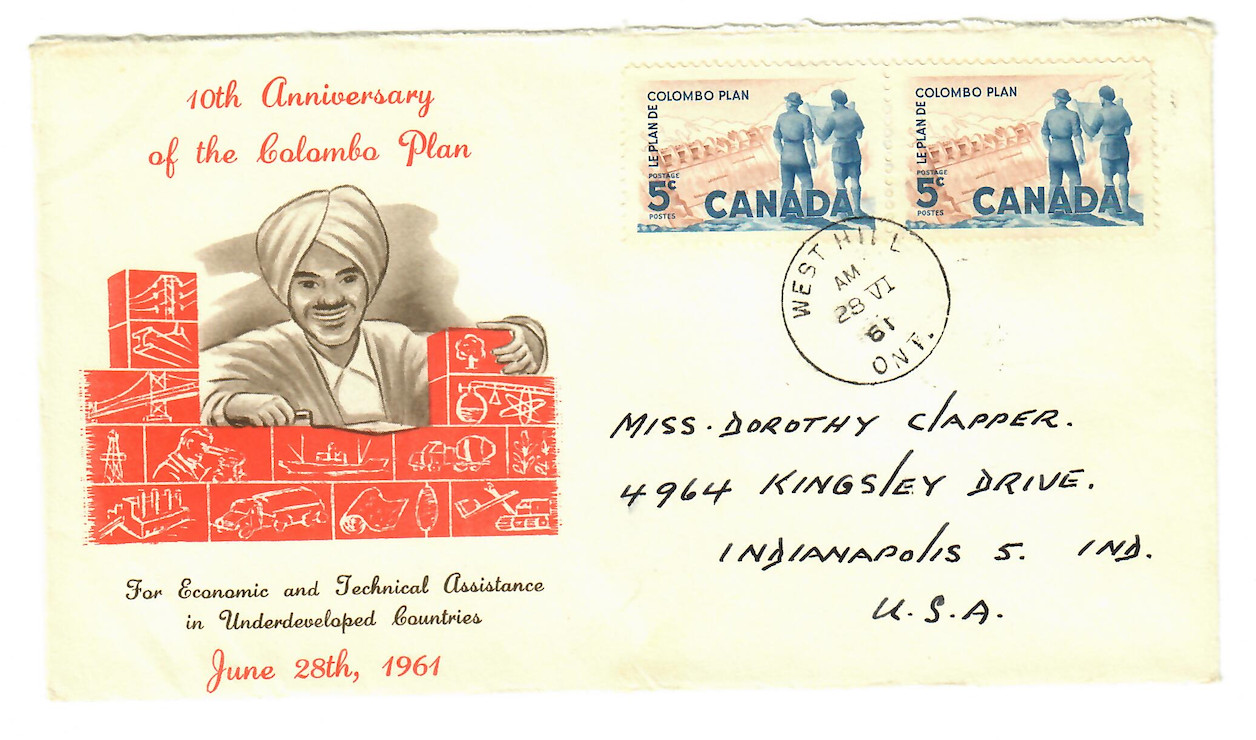 10th Anniversary
of the Colombo Plan
For Economic and Technical Assistance
in Underdeveloped Countries
June 28th, 1961
COLOMBO PLAN
LE PLAN DE
POSTAGE
5c
POSTES
CANADA
COLOMBO PLAN
LE PLAN DE
POSTAGE
5c
POSTES
CANADA
WEST HILL
AM
28 VI
61
ONT.
MISS. DOROTHY CLAPPER.
4964 KINGSLEY DRIVE.
INDIANAPOLIS 5. IND.
U.S.A.